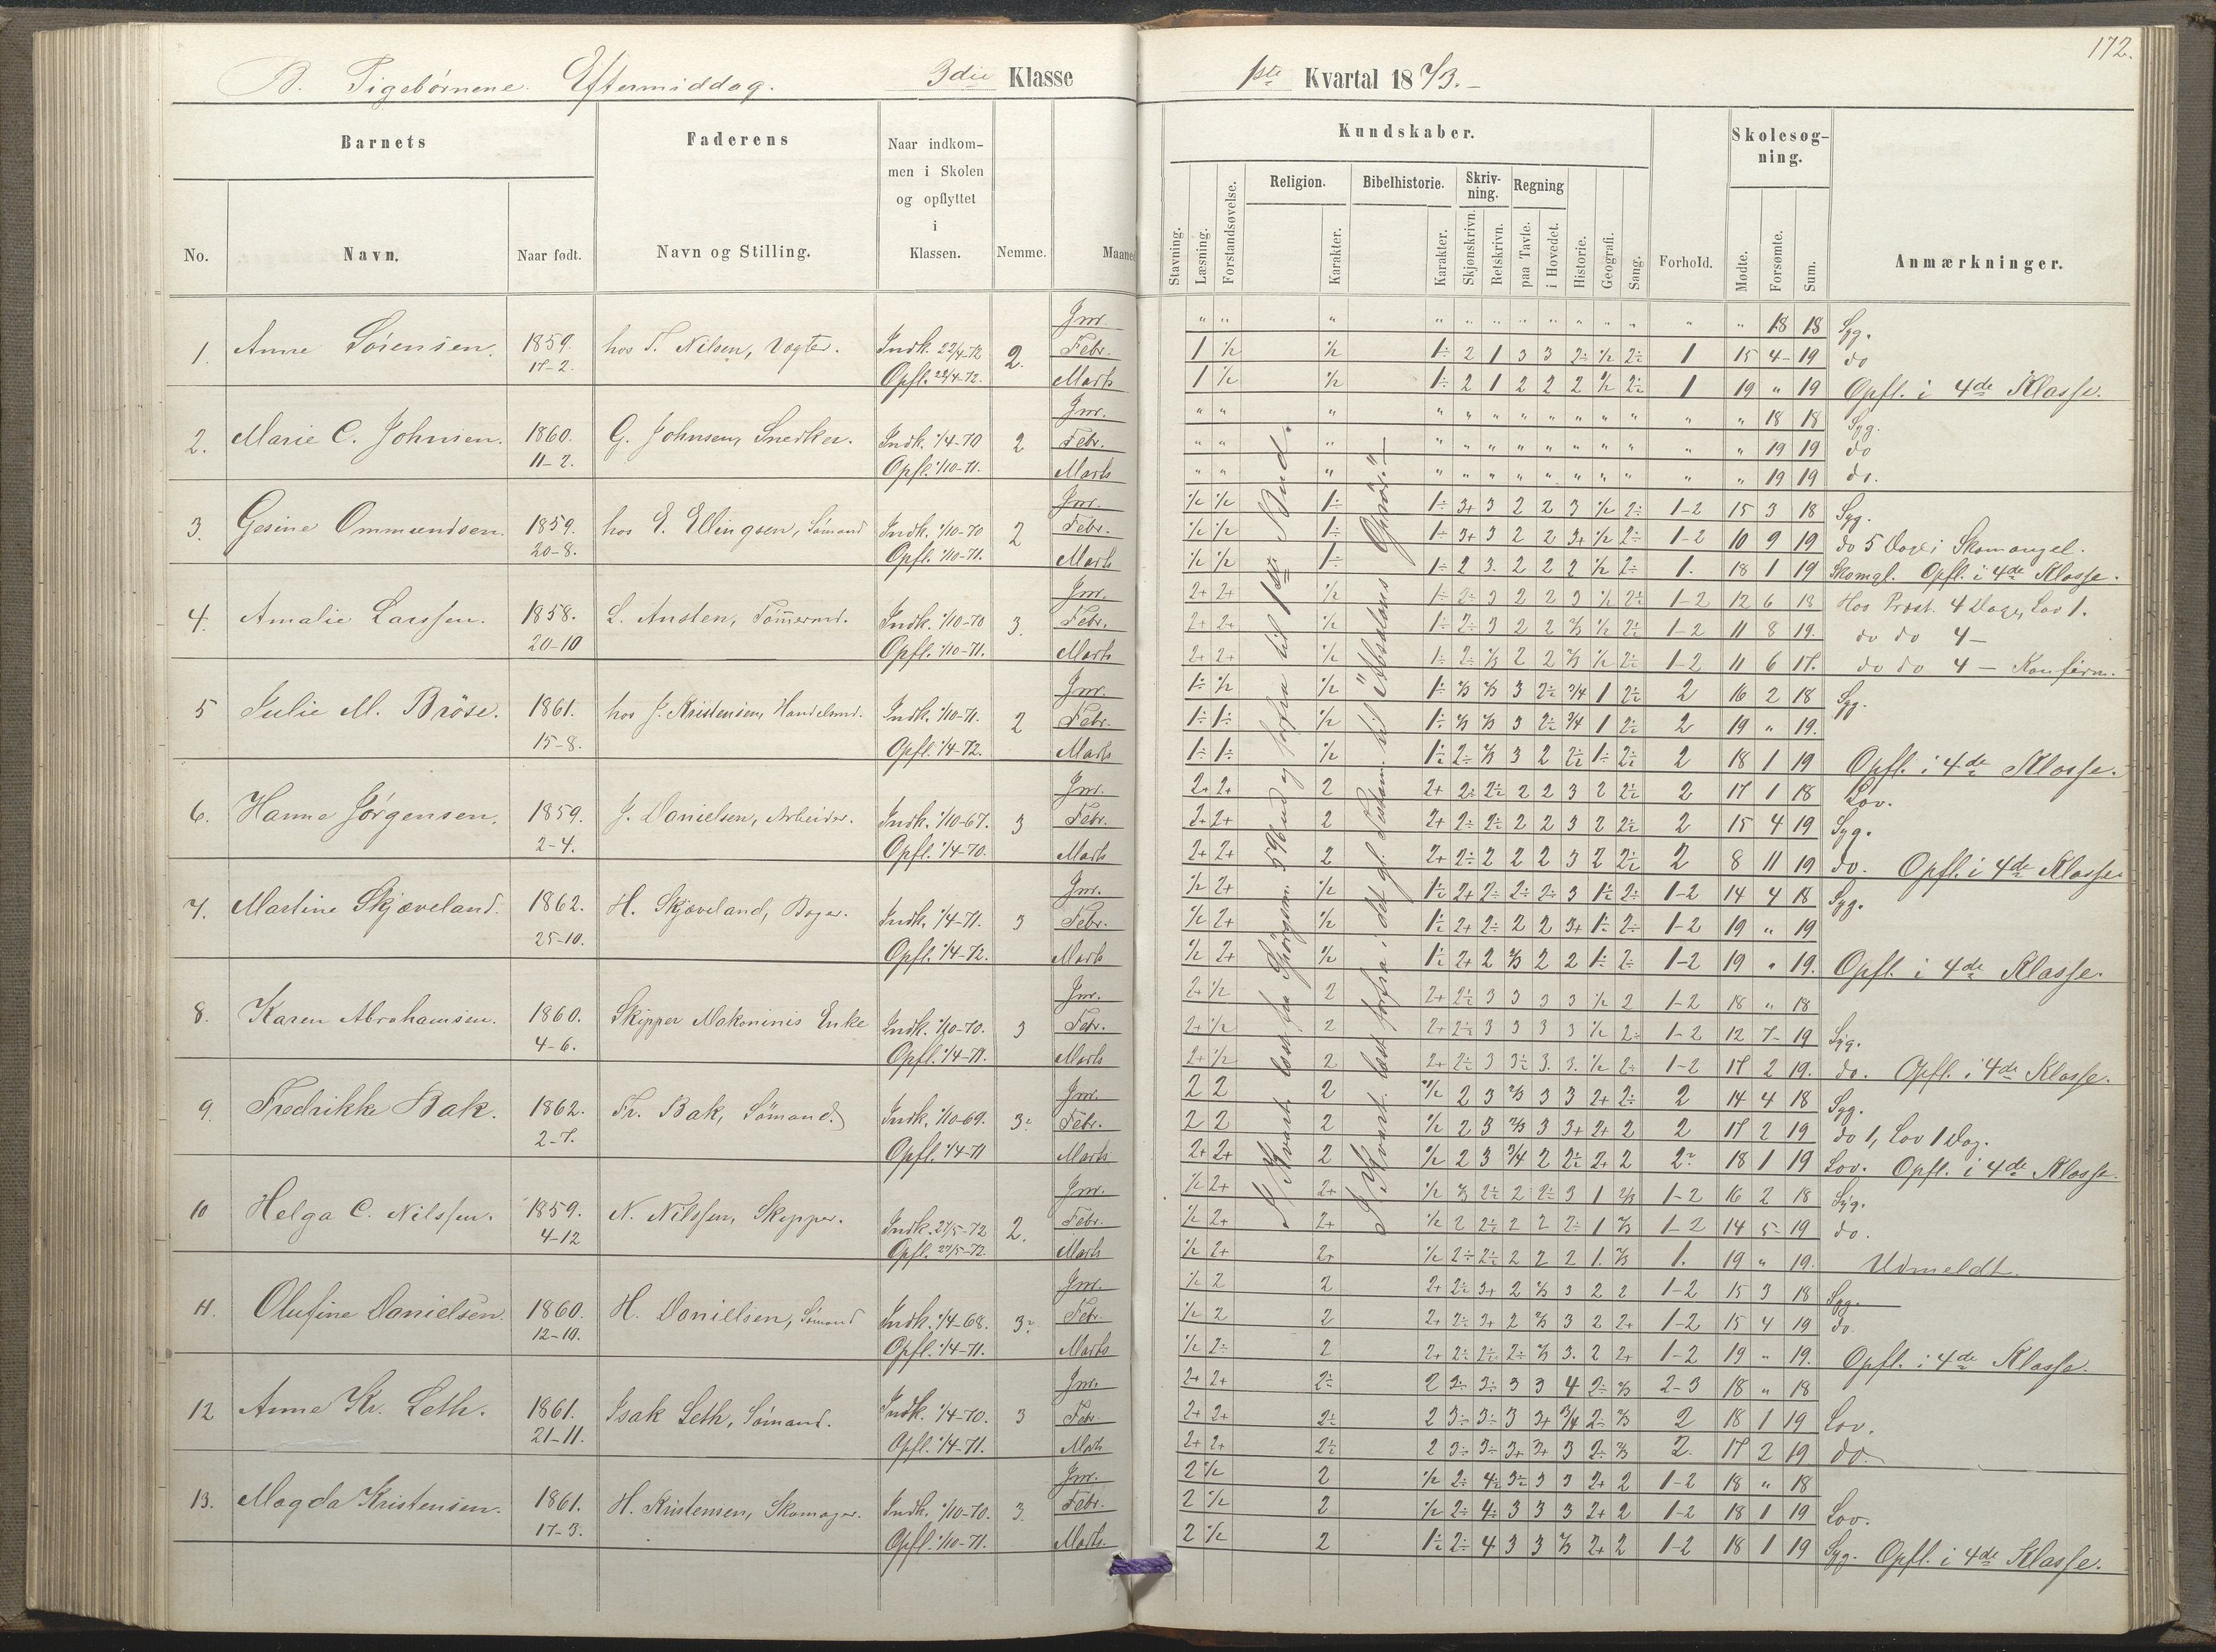 172.
B. Pigebørnene. Eftermiddag. 3die Klasse 1ste Kvartal 1873.
Barnets Faderens Naar indkommen i Skolen og opflyttet i Klassen. Nemme. Maaned
No. Navn. Naar født. Navn og Stilling.
Kundskaber. Skolesøgning.
Stavning. Læsning. Forstandsøvelse. Religion. Karakter. Bibelhistorie. Karakter. Skrivning. Skjønskrivn. Retskrivn. Regning paa Tavle. i Hovedet. Historie. Geografi. Sang. Forhold. Mødte. Forsømte. Sum. Anmærkninger.
1. Anne Sörensen. 1859. 17-2. hos T. Nilsen, Vogter. Indk. 22/4-72 Opfl. 22/4-72. 2.
Jnr. " " " " " " " " " " " " " 18 18 Syg.
Febr. 1 1/2 1/2 1÷ 2 1 3 3 2÷ 1/2 2÷ 1 15 4 19 do
Marts 1 1/2 1/2 1÷ 2 1 2 2 2 1/2 2÷ 1 19 " 19 Opfl. i 4de Klasse.
2. Marie C. Johnsen. 1860. 11-2. G. Johnsen, Snedker. Indk. 1/4-70 Opfl. 1/10-71. 2
Jnr. " " " " " " " " " " " " " 18 18 Syg.
Febr. " " " " " " " " " " " " " 19 19 do
Marts " " " " " " " " " " " " " 19 19 do.
3. Gesine Ommundsen. 1859. 20-8. hos E. Ellingsen, Sömand Indk. 1/10-70 Opfl. 1/10-71. 2
Jnr. 1/2 1/2 1÷ 1÷ 3+ 3 2 2 3 1/2 2÷ 1-2 15 3 18 Syg.
Febr. 1/2 1/2 1÷ 1÷ 3+ 3 2 2 3+ 1/2 2÷ 1-2 10 9 19 do 5 Dage i Skomangel.
Marts 1/2 1/2 1÷ 1÷ 2 3. 2 2 2 1/2 2÷ 1. 18 1 19 Skomgl. Opfl. i 4de Klasse.
4. Amalie Larssen. 1858. 20-10 L. Austen, Tömmermd. Indk. 1/10-70 Opfl. 1/10-71. 3.
Jnr. 2+ 2+ 1/2 1÷ 2÷ 3 2 2 3 1/2 2÷ 1-2 12 6 18 Hos Præst. 4 Dage, Lov 1.
Febr. 2+ 2+ 1/2 1÷ 2÷ 3 2 2 2/3 1/2 2÷ 1-2 11 8 19. do do 4 —
Marts 2+ 2+ 1/2 1÷ 2÷ 2/3 2 2 2/3 1/2 2÷ 1-2 11 6 17. do do 4 — Konfirm.
5 Julie M. Bröse. 1861. 15-8. hos J. Kristensen, Handelsmd. Indk. 1/10-71. Opfl. 1/4-72. 2
Jnr. 1÷ 1/2 1/2 1÷ 2/3 2/3 3 2÷ 3/4 1 2÷ 2 16 2 18 Syg.
Febr. 1÷ 1÷ 1/2 1÷ 2/3 2/3 3 2÷ 3/4 1 2÷ 2 19 " 19.
Marts 1÷ 1÷ 1/2 1÷ 2÷ 2/3 3 2 2÷ 1÷ 2÷ 2 18 1 19 Opfl. i 4de Klasse.
6. Hanne Jörgensen. 1859. 2-4. J. Danielsen, Arbeider. Indk. 1/10-67. Opfl. 1/4-70. 3
Jnr. 2+ 2+ 2 2+ 2÷ 2÷ 2 2 3 2 2÷ 2 17 1 18 Lov.
Febr. 2+ 2+ 2 2+ 2÷ 2÷ 2 2 3 2 2÷ 2 15 4 19 Syg.
Marts 2+ 2+ 2 2+ 2÷ 2 2 2 3 2 2÷ 2 8 11 19 do. Opfl. i 4de Klasse
7. Martine Skjæveland. 1862. 25-10. H. Skjæveland, Bager. Indk. 1/4-71. Opfl. 1/4-72. 3
Jnr. 1/2 2+ 1/2 1÷ 2+ 2÷ 2÷ 2÷ 3 1÷ 2÷ 1-2 14 4 18 Syg.
Febr. 1/2 2+ 1/2 1÷ 2+ 2÷ 2 2 3+ 1÷ 2÷ 1-2 19 " 19
Marts 1/2 2+ 1/2 1÷ 2+ 2 2/3 2 2 1÷ 2÷ 1-2 19 " 19. Opfl. i 4de Klasse.
8. Karen Abrahamsen. 1860. 4-6. Skipper Makoninis Enke Indk. 1/10-70. Opfl. 1/4-71. 3
Jnr. 2+ 1/2 2 2+ 2÷ 3 3 3 3 1/2 2 1-2 18 " 18
Febr. 2+ 1/2 2 2+ 2÷ 3 3 3 3 1/2 2÷ 1-2 12 7 19 Syg.
Marts 2+ 1/2 2 2+ 2÷ 3 3÷ 3. 3. 1/2 2÷ 1-2 17 2 19. do. Opfl. i 4de Klasse.
9. Fredrikke Bak. 1862. 2-7. Fr. Bak, Sömand. Indk. 1/10-69. Opfl. 1/4-71 3÷
Jnr. 2 2 2 1/2 2 3 2/3 3 3 2+ 2÷ 2 14 4 18 Syg.
Febr. 2 2 2 1/2 2 3 2/3 3 3+ 2+ 2 2 17 2 19 do 1, Lov 1 Dag.
Marts 2+ 2+ 2 1/2 2 3 3/4 2 2÷ 2+ 2 2÷ 18 1 19 Lov. Opfl. i 4de Klasse.
10 Helga C. Nilssen. 1859. 4-12 N. Nilssen, Skipper. Indk. 27/5-72 Opfl. 27/5-72. 2.
Jnr. 1/2 2+ 2+ 1/2 2/3 2÷ 2 2÷ 3 1 2/3 1-2 16 2 18 Syg.
Febr. 1/2 2+ 2+ 1/2 2 2÷ 2 2 2÷ 1 2/3 1-2 14 5 19 do.
Marts 1/2 2+ 2+ 1/2 2÷ 2÷ 2 2 2 1. 2/3 1. 19 " 19. Udmeldt.
11. Olufine Danielsen. 1860. 12-10. H. Daniellsen, Sömand Indk. 1/4-68. Opfl. 1/4-71. 3÷
Jnr. 1/2 2 2 2+ 2÷ 3+ 2 2/3 3 2 2 1-2 15 3 18 Syg.
Febr. 1/2 2 2 2+ 2÷ 3+ 2 2/3 3 2 2+ 1-2 15 4 19 do.
Marts 1/2 2÷ 2 2+ 2÷ 2÷ 2÷ 2/3 3. 2 2+ 1-2 19 " 19. Opfl. i 4de Klasse.
12 Anne Kr. Leth. 1861. 21-11. Isak Leth, Sömand. Indk. 1/4-70. Opfl. 1/4-71. 3
Jnr. 2+ 2+ 2÷ 2 3÷ 3÷ 3 3 4 2÷ 2/3 2-3 18 " 18
Febr. 2+ 2+ 2÷ 2 3÷ 3÷ 3 3+ 3/4 2÷ 2/3 2 18 1 19 Lov.
Marts 2+ 2+ 2÷ 2 3÷ 3÷ 3+ 3+ 3 2÷ 2/3 2. 17 2 19 do.
13. Magda Kristensen. 1861. 17-3. H. Kristensen, Skomager. Indk. 1/10-70. Opfl. 1/10-71. 3.
Jnr. 2 1/2 2 1/2 2÷ 4÷ 3÷ 3 3 2+ 2 1-2 18 " 18
Febr. 2 1/2 2 1/2 2÷ 4÷ 3 3 3 2+ 2 1-2 18 1 19 Lov.
Marts. 2 1/2 2 1÷ 2÷ 4 3 3 2/3 2+ 2 1-2 18 1 19 Syg. Opfl. i 4de Klasse.
I Kvart. læst fra Spörgsm. til 1ste Bud.
I Kvart. læst forfra i det gl. Testam. til "Absalons Oprör."